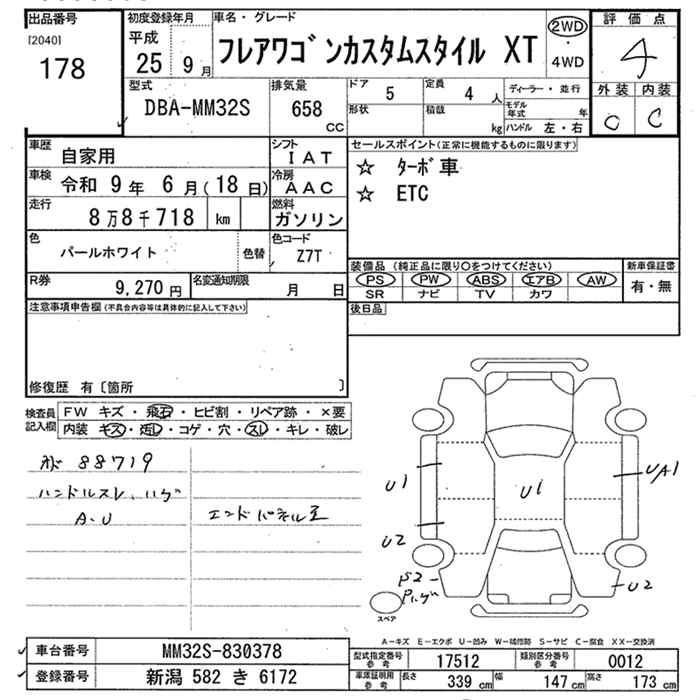 出品番号
[2040]
178
初度登録年月
平成
25 9月
車名・グレード
フレアワゴンカスタムスタイル XT
2WD
・
4WD
評価点
4
外装 内装
C C
型式
DBA-MM32S
排気量
658
CC
ドア 5
定員 4 人
形状
積載 kg
ディーラー・並行
モデル年式 年
ハンドル 左・右
車歴 自家用
シフト IAT
車検 令和 9年 6月(18日)
冷房 AAC
走行 8万8千718 km
燃料 ガソリン
色 パールホワイト
色替
色コード Z7T
R券 9,270円
名変通知期限 月 日
セールスポイント(正常に機能するものに限ります)
☆ ターボ車
☆ ETC
装備品 (純正品に限り○をつけてください)
新車保証書
PS PW ABS エアB AW
SR ナビ TV カワ
有・無
後日品
注意事項申告欄(不具合内容等は具体的に記入して下さい)
修復歴 有〔箇所 〕
検査員記入欄
FW キズ・飛石・ヒビ割・リペア跡・×要
内装 キズ・汚れ・コゲ・穴・スレ・キレ・破レ
88719
ハンドルスレ、ハゲ
A.U
エンドパネル
U1
U2
U1
U/A1
U2
P2
P.ハゲ
スペア
A-キズ E-エクボ U-凹み W-補修跡 S-サビ C-腐食 XX-交換済
車台番号 MM32S-830378
登録番号 新潟 582 き 6172
型式指定番号 参考 17512
類別区分番号 参考 0012
車庫証明用 参考
長さ 339 cm 幅 147 cm 高さ 173 cm